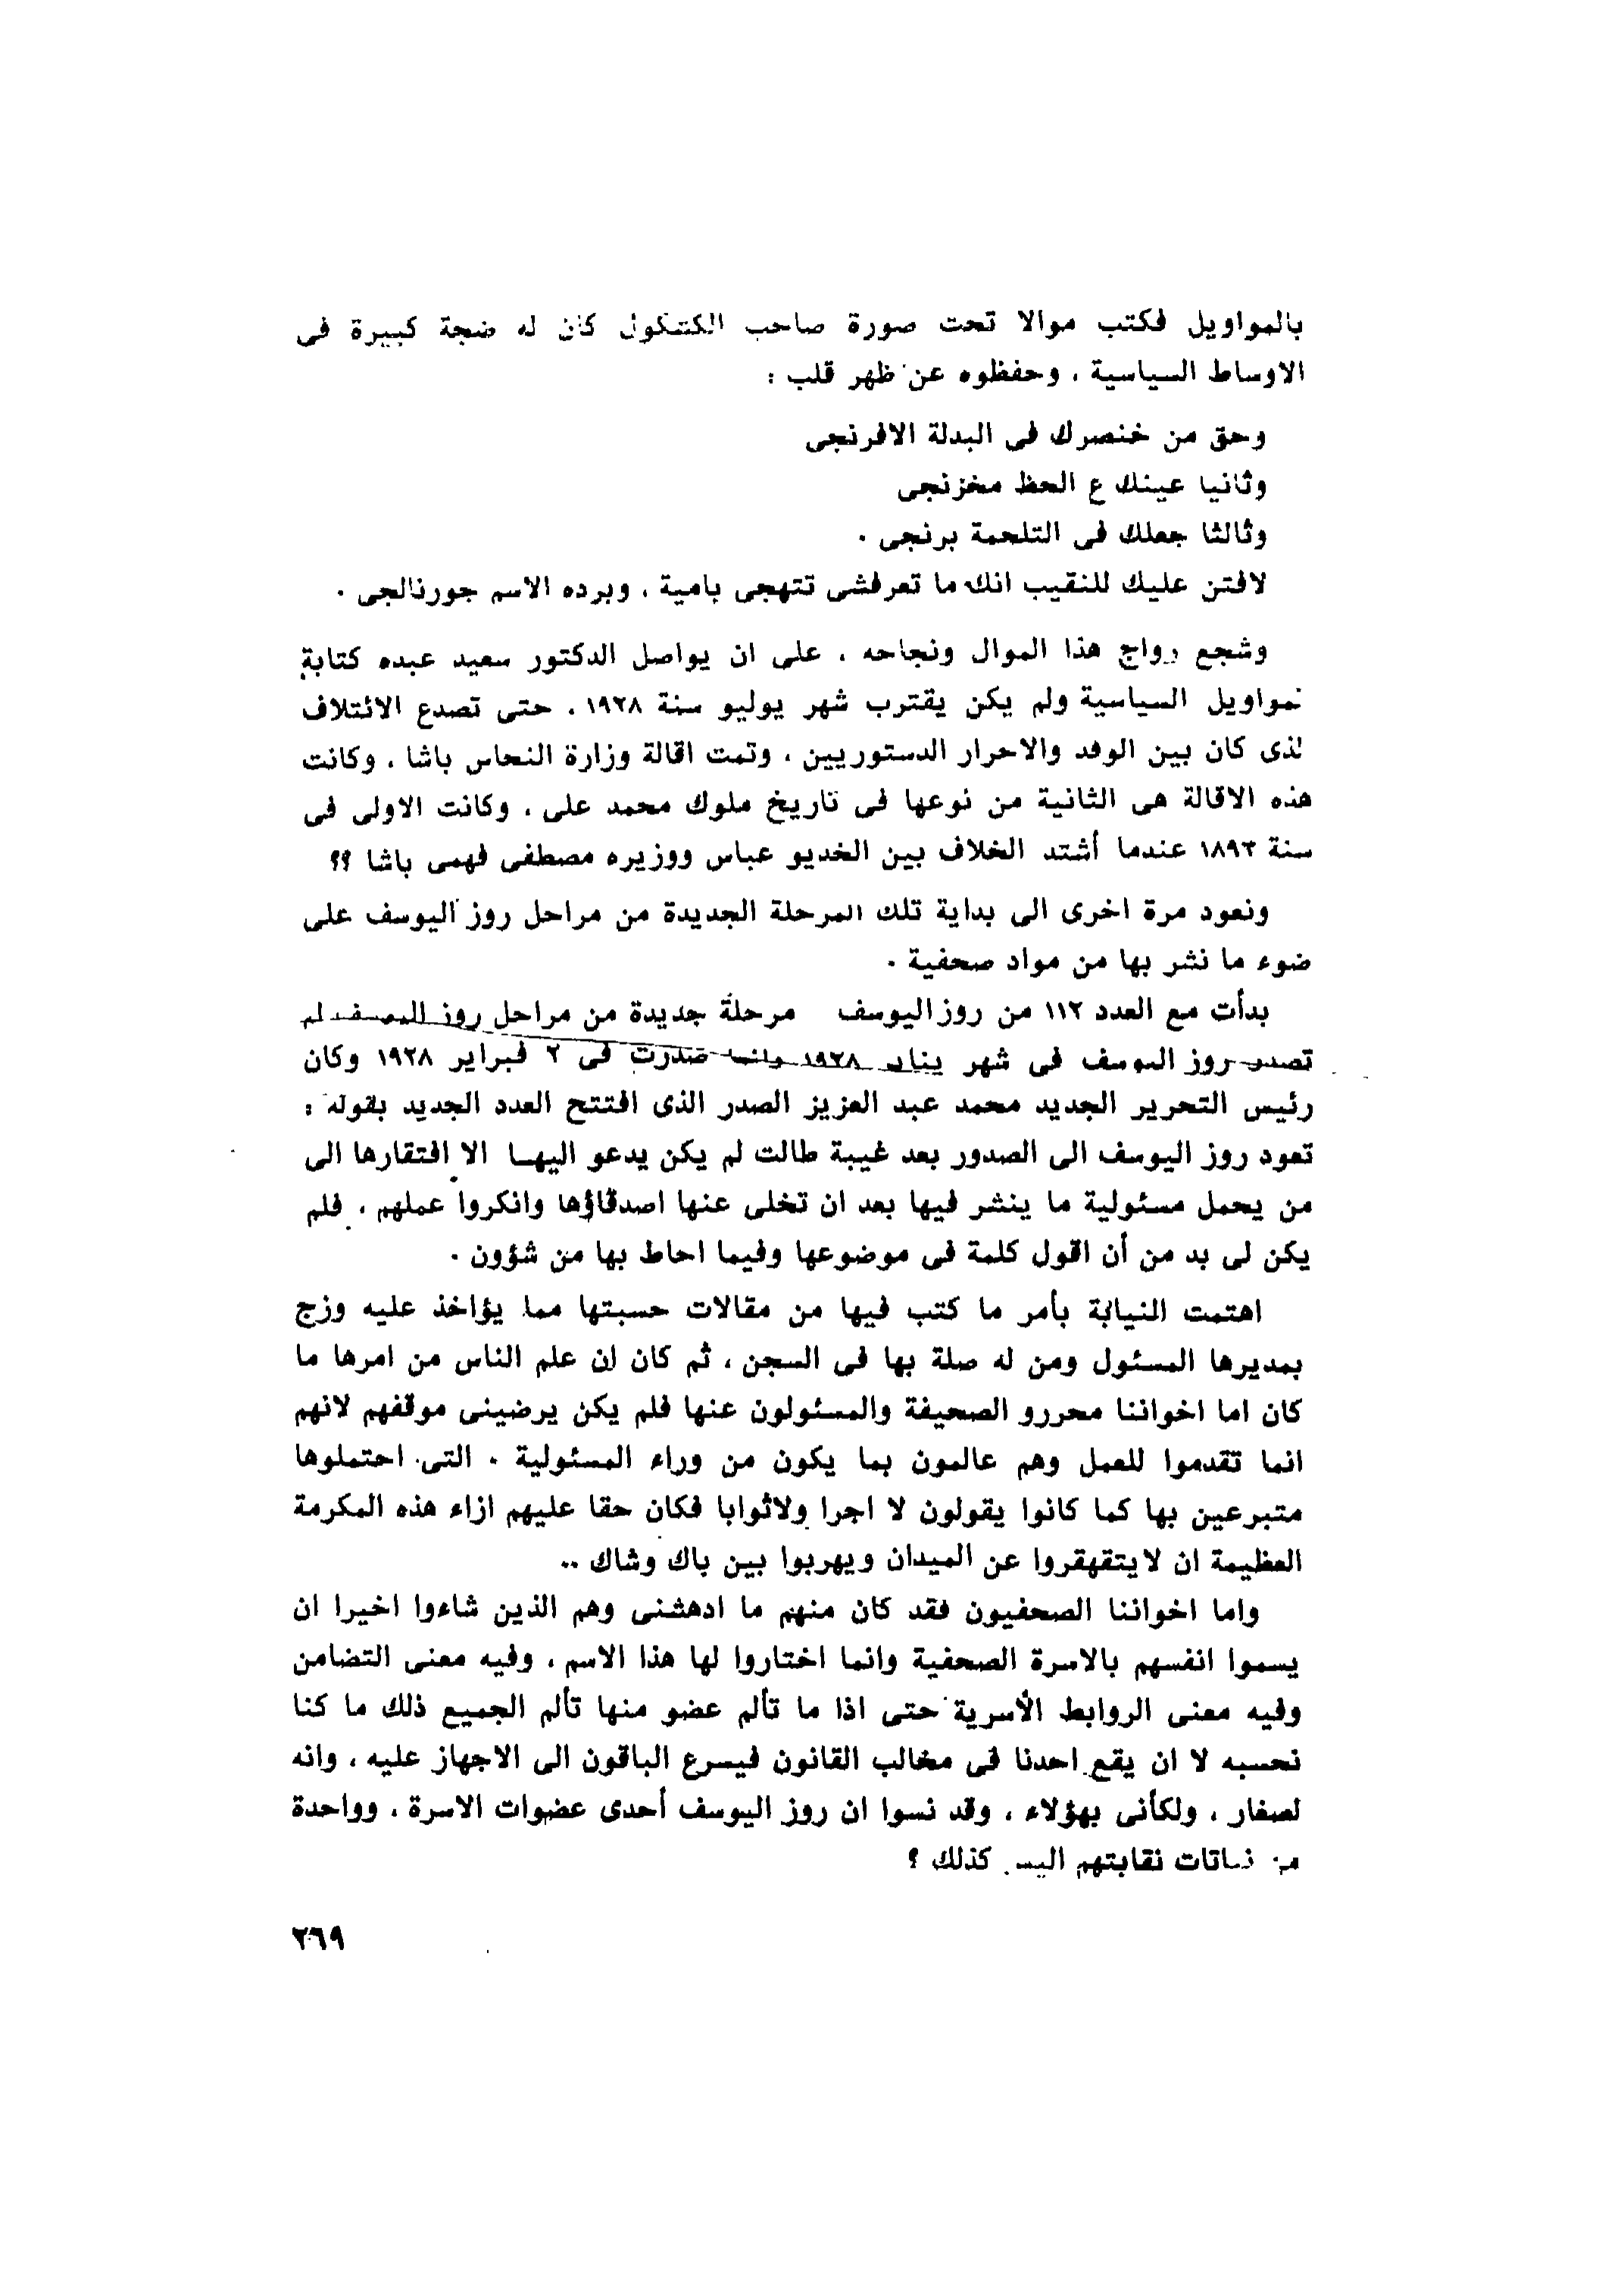 بالمواويل فكتب موالا تحت صورة صاحب الكشكول كان له ضجة كبيرة فى
الاوساط السياسية ، وحفظوه عن ظهر قلب :
وحق من خنصرك فى البدلة الافرنجى
وثانيا عينك ع الحظ مخزنجى
وثالثا جعلك فى التلحمة برنجى .
لافتن عليك للنقيب انك ما تعرفشى تتهجى بامية ، وبرده الاسم جورنالجى .
وشجع رواج هذا الموال ونجاحه ، على ان يواصل الدكتور سعيد عبده كتابة
لمواويل السياسية ولم يكن يقترب شهر يوليو سنة ١٩٢٨ ، حتى تصدع الائتلاف
لذى كان بين الوفد والاحرار الدستوريين ، وتمت اقالة وزارة النحاس باشا ، وكانت
هذه الاقالة هى الثانية من نوعها فى تاريخ ملوك محمد على ، وكانت الاولى فى
سنة ١٨٩٣ عندما أشتد الخلاف بين الخديو عباس ووزيره مصطفى فهمى باشا ؟؟
ونعود مرة اخرى الى بداية تلك المرحلة الجديدة من مراحل روز اليوسف على
ضوء ما نشر بها من مواد صحفية .
بدأت مع العدد ١١٢ من روز اليوسف مرحلة جديدة من مراحل روز اليوسف لم
تصدر روز اليوسف فى شهر يناير ١٩٢٨ وانما صدرت فى ٢ فبراير ١٩٢٨ وكان
رئيس التحرير الجديد محمد عبد العزيز الصدر الذى افتتح العدد الجديد بقوله :
تعود روز اليوسف الى الصدور بعد غيبة طالت لم يكن يدعو اليهـا الا افتقارها الى
من يحمل مسئولية ما ينشر فيها بعد ان تخلى عنها اصدقاؤها وانكروا عملهم ، فلم
يكن لى بد من أن اقول كلمة فى موضوعها وفيما احاط بها من شؤون .
اهتمت النيابة بأمر ما كتب فيها من مقالات حسبتها مما يؤاخذ عليه وزج
بمديرها المسئول ومن له صلة بها فى السجن ، ثم كان ان علم الناس من امرها ما
كان اما اخواننا محررو الصحيفة والمسئولون عنها فلم يكن يرضينى موقفهم لانهم
انما تقدموا للعمل وهم عالمون بما يكون من وراء المسئولية . التى احتملوها
متبرعين بها كما كانوا يقولون لا اجرا ولاثوابا فكان حقا عليهم ازاء هذه المكرمة
العظيمة ان لايتقهقروا عن الميدان ويهربوا بين باك وشاك ..
واما اخواننا الصحفيون فقد كان منهم ما ادهشنى وهم الذين شاءوا اخيرا ان
يسموا انفسهم بالاسرة الصحفية وانما اختاروا لها هذا الاسم ، وفيه معنى التضامن
وفيه معنى الروابط الأسرية حتى اذا ما تألم عضو منها تألم الجميع ذلك ما كنا
نحسبه لا ان يقع احدنا فى مخالب القانون فيسرع الباقون الى الاجهاز عليه ، وانه
لصغار ، ولكأنى بهؤلاء ، وقد نسوا ان روز اليوسف أحدى عضوات الاسرة ، وواحدة
من نقابتهم اليس كذلك ؟
٢٦٩